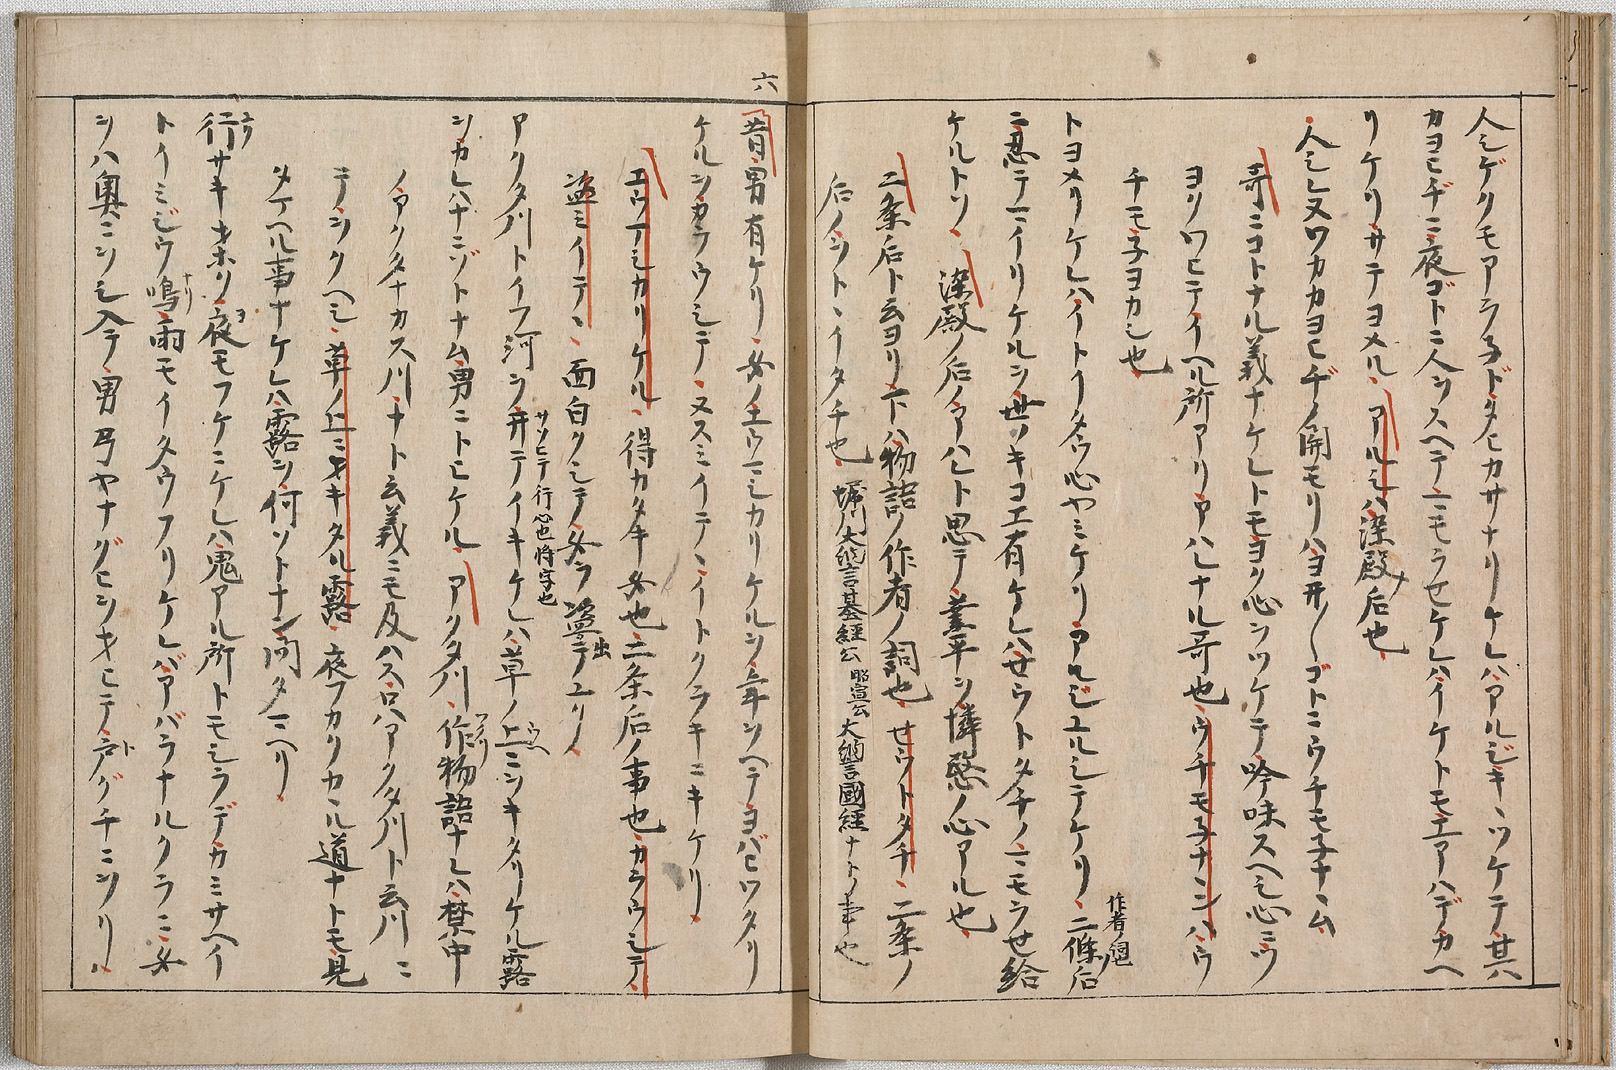 人シゲクモアラ子ドタヒカサナリケレハアルジキヽツケテ其
カヨヒヂニ夜ゴトニ人ヲスヘテマモラセケレハイケトモエアハデカヘ
リケリサテヨメル アルシハ染殿ノ后也
人シレヌワカカヨヒヂノ関モリハヨヰ〳〵ゴトニウチモ子ナヽム
哥ニコトナル義ナケレトモヨク心ヲツケテ吟味スヘシ心ニツ
ヨクワヒテイヘル所アリアハレナル哥也ウチモ子ナンハウ
チモ子ヨカシ也
トヨメリケレハイトイタウ心ヤミケリアルジユルシテケリ 二條后
作者ノ詞也
ニ忍テマイリケルヲ世ノキコエ有ケレハせウトタチノマモラせ給
ケルトソ 染殿ノ后ノアハレト思テ業平ヲ憐愍ノ心アル也
二条后ト云ヨリ下ハ物語ノ作者ノ詞也 せウトタチ 二条ノ
后ノせウトヽイタチ也 堀川大納言基経公 昭宣公 大納言國経ナトノ事也
六
昔男有ケリ 女ノエウマシカリケルヲ年ヲヘテヨバヒワタリ
ケルヲカラウシテヌスミイテヽイトクラキニキケリ
エウマシカリケル 得カタキ女也二条后ノ事也カラウシテ
盗ミイテヽ 面白クシテ女ヲ盗テ出ユク
アクタ川トイフ河ヲ井テイキケレハ草ノ上ニヲキタリケル露
サソヒテ行心也将字也
ウヘ
ヲカレハナニゾトナム男ニトヒケル アクタ川 作物語ナレハ禁中
ツクリ
ノアクタナカス川ナト云義ニモ及ハス只ハアクタ川ト云川ニ
テヲクヘシ 草ノ上ニヲキタル露 夜フカクカヽル道ナトモ見
タマヘル事ナケレハ露ヲ何ソトナン問タマヘリ
行サキホク夜モフケニケレハ鬼アル所トモシラデカミサヘイ
ユク
ヨ
トイミジウ鳴雨モイタウフリケレバアバラナルクラニ女
ナリ
ヲハ奥ニヲシ入テ男弓ヤナグヒヲオヒテ戸グチニヲリ
ト